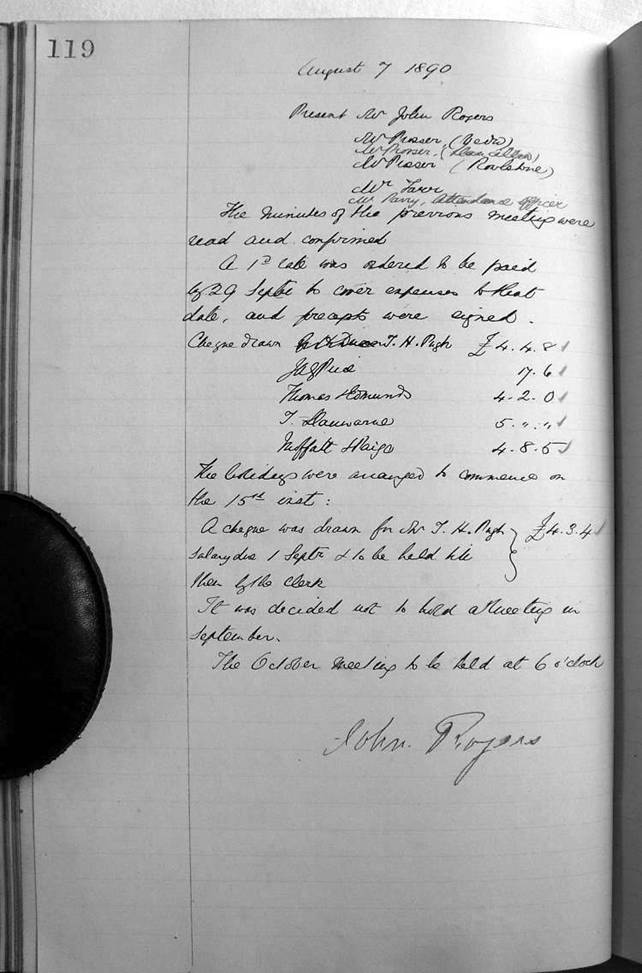 119
August 7 1890
Present Mr John Rogers
Mr Prosser (
Mr Prosser (
Mr Prosser (Rowlstone)
Mr Farr
Mr Parry, Attendance Officer
The minutes of the previous meeting were
read and confirmed
A 1s rate was ordered to be paid
by 29 Septbr to cover expenses to that
date, and precepts were signed.
Cheque drawn T. H. Pugh £4.4.8
17.6
Thomas Edmunds 4.2.0
T. Llanwarne 5.".„
Moffatt & Paige 4.8.5
The holidays were arranged to commence on
the 15th inst:
A cheque was drawn for Mr T. H. Pugh £4.3.4
Salary due 1 Septr & to be held till
then by the Clerk
It was decided not to hold a Meeting in
September.
The October meeting to be held at 6 o'clock
John Rogers